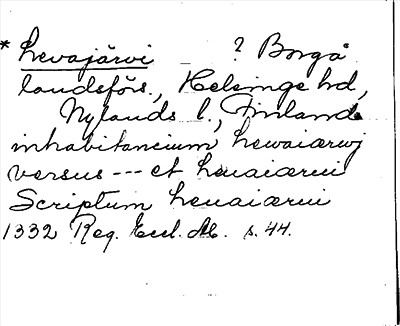 * Hevajärvi ? Borgå
landsförs., Helsinge hd,
Nylands l., Finland
inhabitancium hewaiærwj
versus --- et heuaiærui
Scriptum heuaiærui
1332 Reg. Eccl. Ab. s. 44.